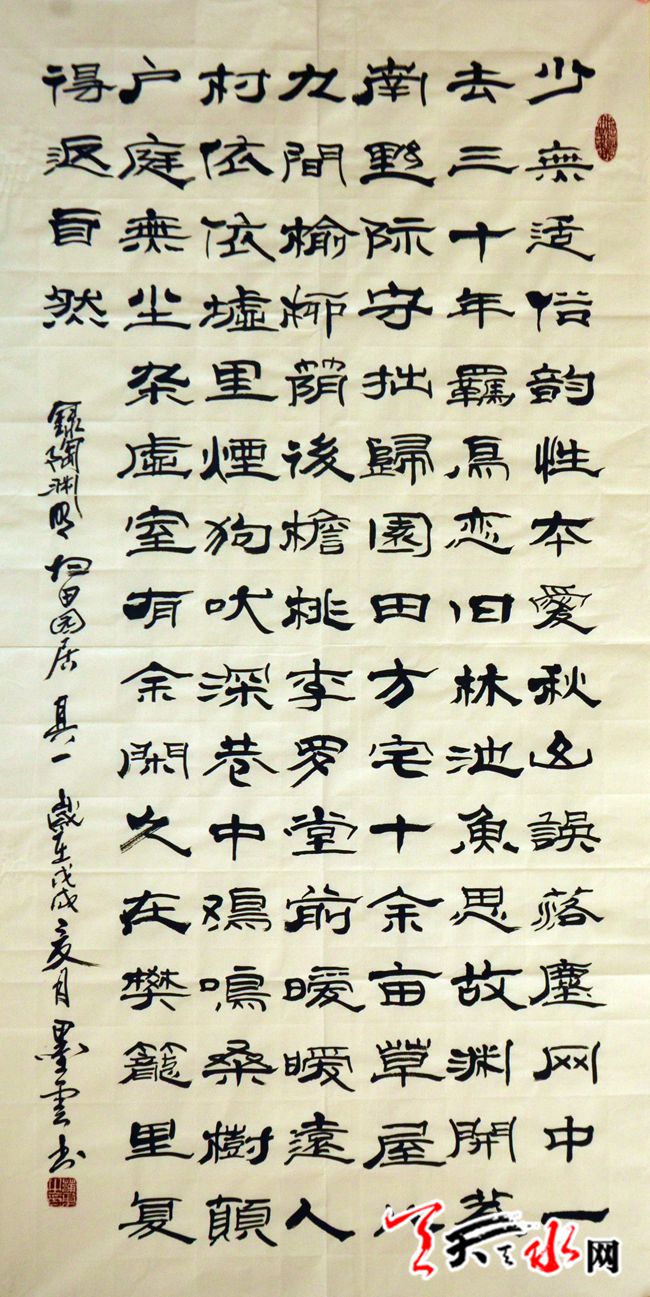 少無适俗韵性本愛秋山誤落塵网中一
去三十年羈鳥恋旧林池魚思故渊開荒
南野际守拙歸園田方宅十余亩草屋八
九間榆柳荫後檐桃李罗堂前暧暧遠人
村依依墟里煙狗吠深巷中鸡鳴桑樹顛
户庭無尘杂虚室有余閑久在樊籠里复
得返自然
錄陶渊明归田园居其一歲在戊戌夏月墨雲书
天水网